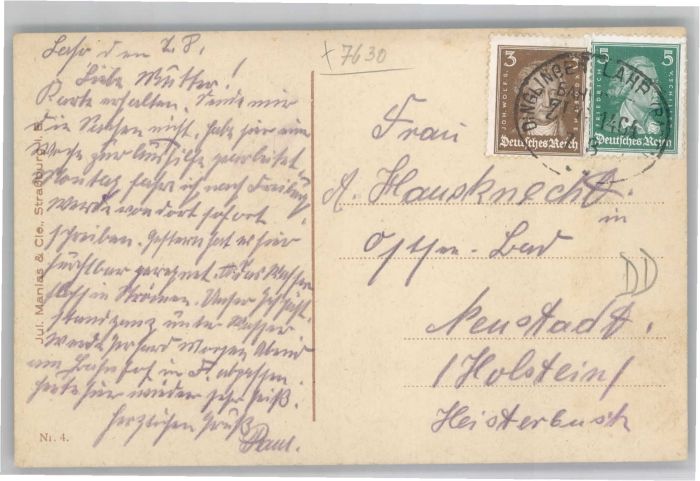 Lahr den 2.8.
Liebe Mutter!
Karte erhalten. Sende mir
die Sachen nicht. Habe hier eine
Woche zur Aushilfe gearbeitet.
Montag fahre ich nach Freiburg.
Werde von dort sofort
schreiben. Gestern hat es hier
furchtbar geregnet. Das Wasser
floß in Strömen. Unser Geschäft
stand ganz unter Wasser
Werde Gerhard Morgen Abend
am Bahnhof in F. abpassen.
Heute hier wieder sehr heiß.
Herzlichen Gruß
Paul.
Nr. 4.
Jul. Manias & Cie., Straßburg i. E.
+ 7630
3
JOH. WOLFG.
Deutsches Reich
5
5
FRIEDRICH V. SCH
Deutsches Reich
DINGLINGEN-LAHR (B
Frau
A. Hausknecht.
in
Ostsee-Bad
Neustadt.
/Holstein/
DD